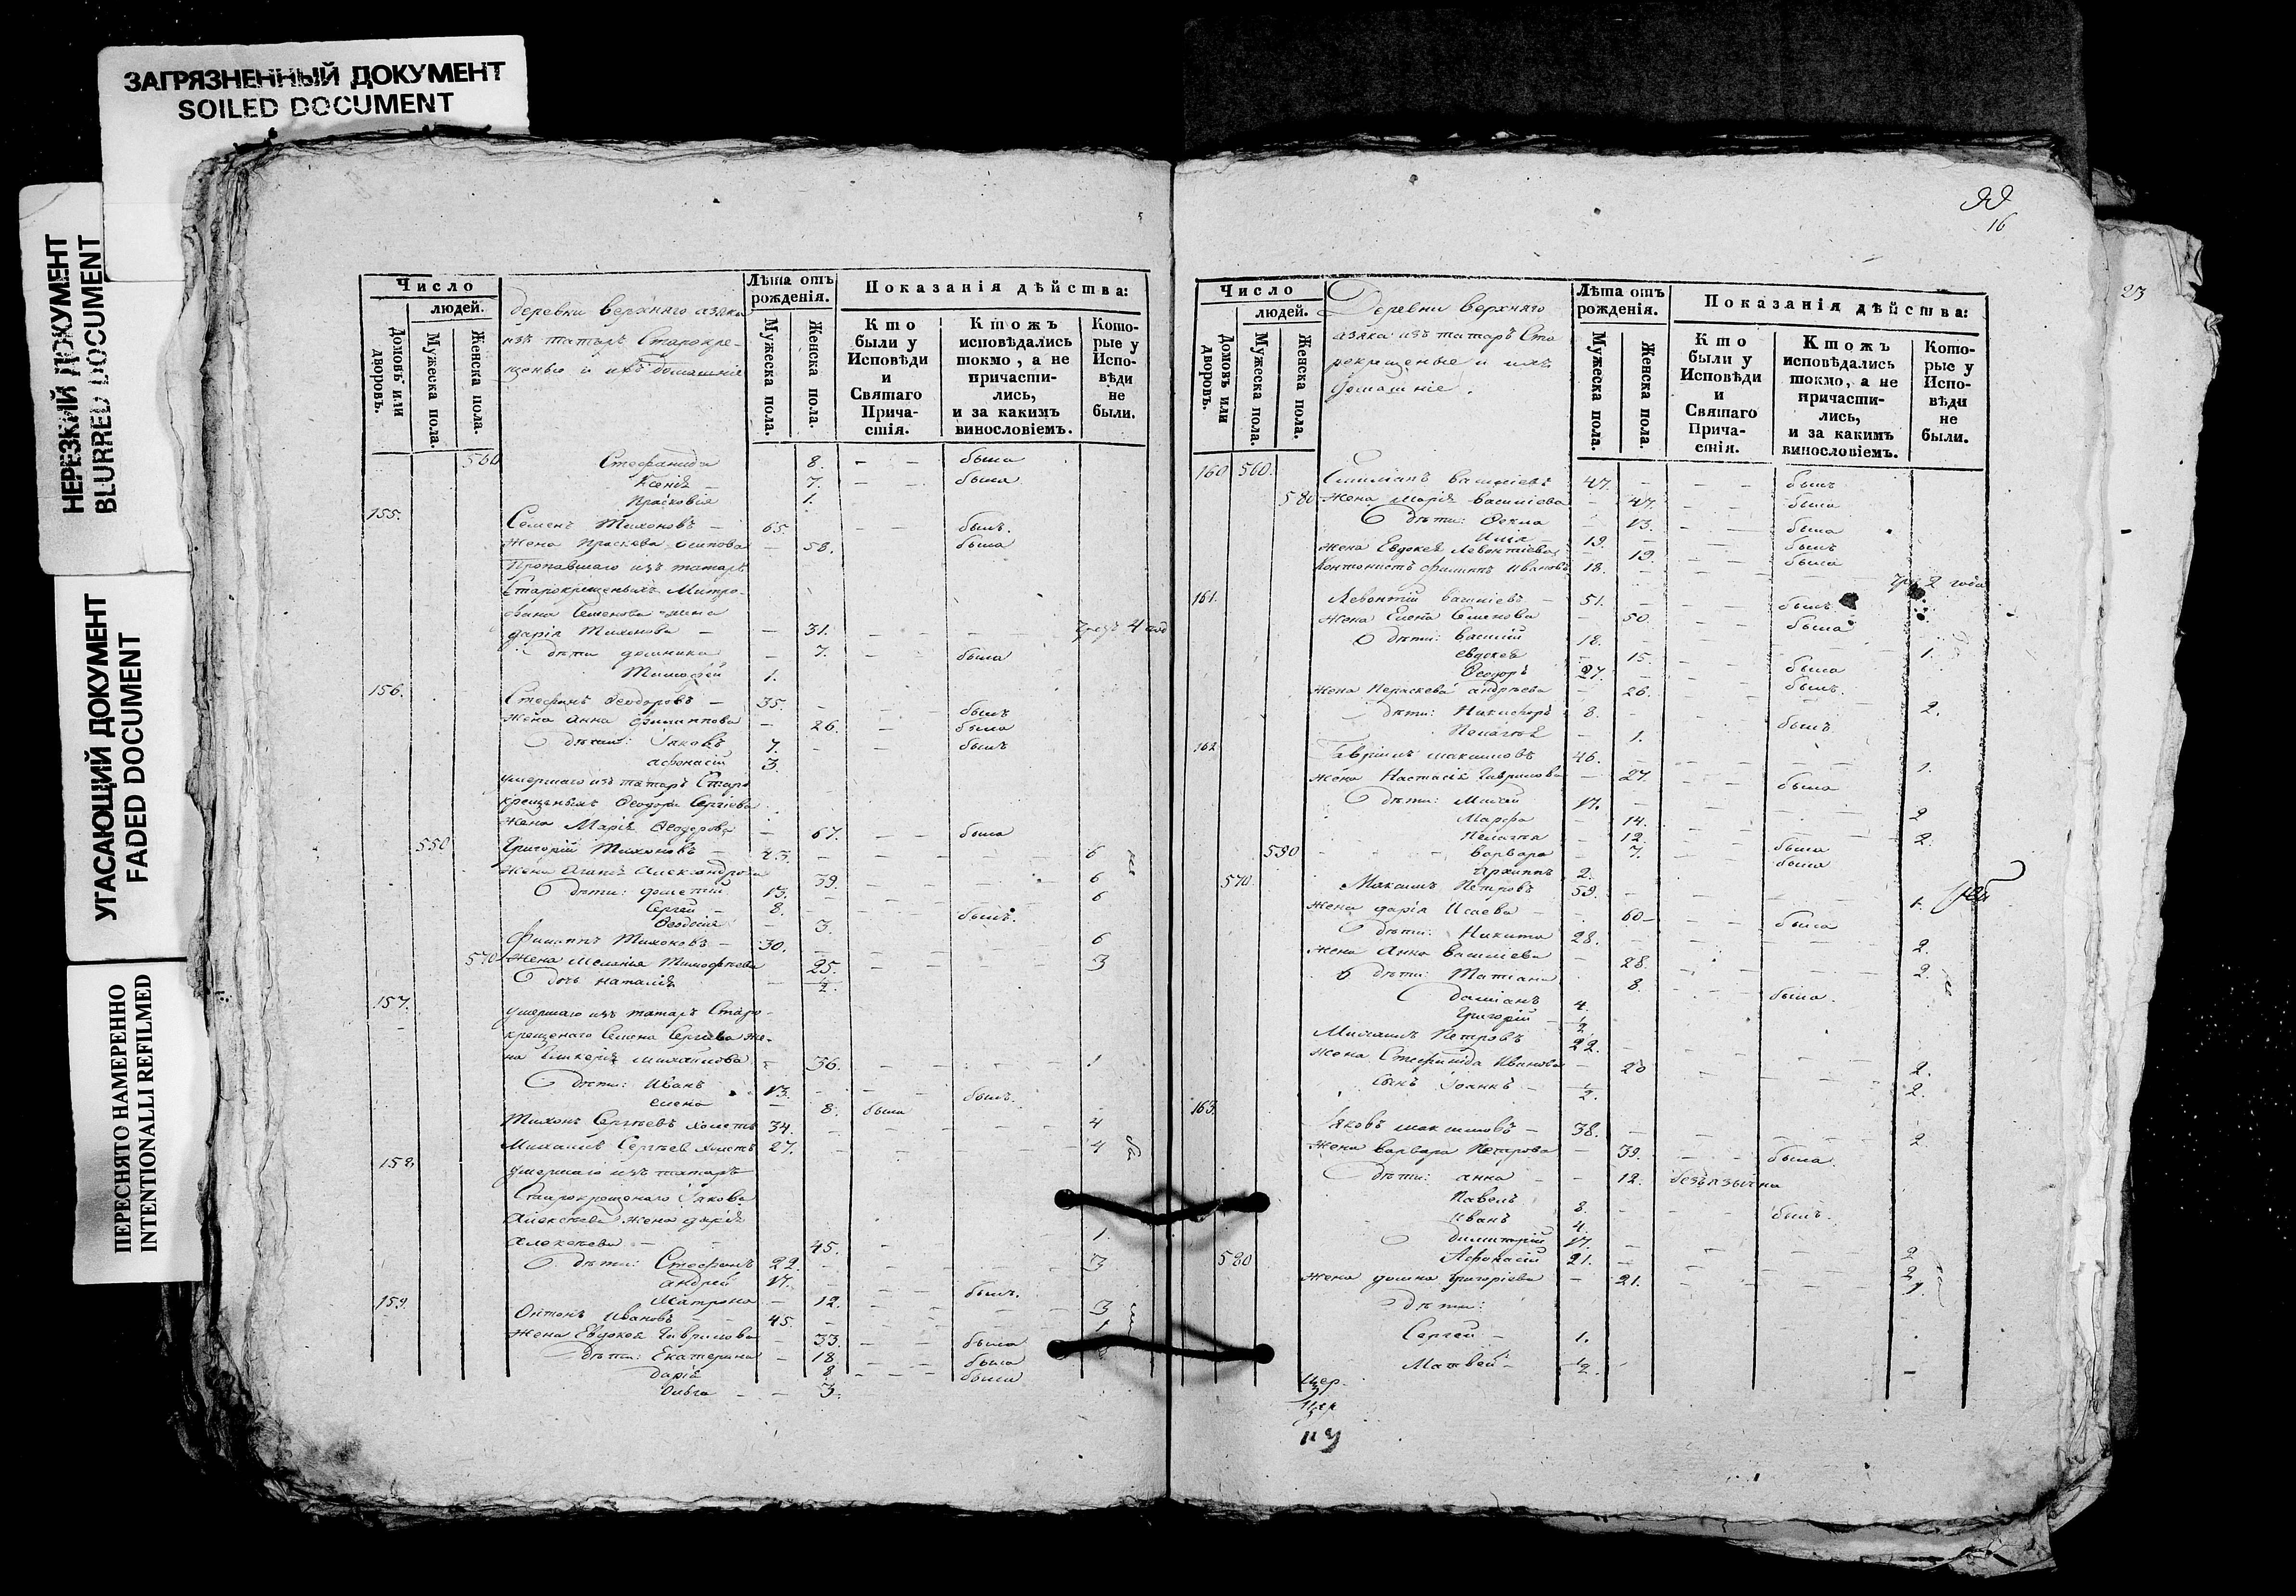 ЗАГРЯЗНЕННЫЙ ДОКУМЕНТ
SOILED DOCUMENT
НЕРЕЗКИЙ ДОКУМЕНТ
BLURRED DOCUMENT
УГАСАЮЩИЙ ДОКУМЕНТ
FADED DOCUMENT
ПЕРЕСНЯТО НАМЕРЕННО
INTENTIONALLI REFILMED
Число
людей.
Домовъ или дворовъ.
Мужеска пола.
Женска пола.
деревни верхняго азяка
изъ татаръ Старокре-
щеные и ихъ домашніе
Лѣта отъ рожденія.
Мужеска пола.
Женска пола.
Показанія дѣйства:
Кто были у Исповѣди и Святаго Причастія.
Ктожъ исповѣдались токмо, а не причастились, и за какимъ винословіемъ.
Которые у Исповѣди не были.
560 Стефанида 8. была
Ксенія 7. была
Прасковія 1.
155. Семенъ Тихоновъ 65. былъ.
Жена Прасковья Осипова 58. была
Пропавшаго изъ татаръ
Старокрещеныхъ Митро-
фана Семенова жена
Дарія Тихонова 31. 4
дѣти 7. была
Тимофей 1.
156. Стефанъ Феодоровъ 35. былъ
Жена Анна Филиппова 26. была
дѣти: Іаковъ 7. былъ
Афонасій 3.
умершаго изъ татаръ Старо
крещеныхъ Феодора Сергіева
Жена Марія Феодорова 67. была
550 Григорій Тихоновъ 43. 6
Жена Агапія Александрова 39. 6
дѣти: 13. 6
Сергей 8. былъ.
Феодосія 3.
Филиппъ Тихоновъ 30. 6
570 Жена Меланія Тимофеева 25. 3
дочь Наталія 1/2.
157. умершаго изъ татаръ Старо-
крещенаго Семена Сергіева же-
на Гликерія Михайлова 36. 1
дѣти: Иванъ 13. былъ.
Елена 8. была
Тихонъ Сергѣевъ холостъ 34. 4
Михаилъ Сергѣев холостъ 27. 4
158. умершаго изъ татаръ
Старокрещенаго Іакова
Алексѣева жена Дарія
Алексѣева 45. 1.
дѣти: Стефанъ 22. 3
Андрей 17.
Матрона 12.
159. Антонъ Ивановъ 45. 3
Жена Евдокея Гаврилова 33. 1
дѣти: Екатерина 18. была
Дарія 8. была
Ольга 3.
16
23
Число
людей.
Домовъ или дворовъ.
Мужеска пола.
Женска пола.
Деревни верхняго
азяка изъ татаръ Ста
рокрещеные и ихъ
домашніе.
Лѣта отъ рожденія.
Мужеска пола.
Женска пола.
Показанія дѣйства:
Кто были у Исповѣди и Святаго Причастія.
Ктожъ исповѣдались токмо, а не причастились, и за какимъ винословіемъ.
Которые у Исповѣди не были.
160 560. 47. былъ
580 Жена Марія Васильева 47. была
дѣти: Фекла 13. была
Илія 19. былъ
Жена Евдокея Левонтіева 19. была
Кантонистъ Филиппъ Ивановъ 18. 2 года
161. Левонтій Васильевъ 51. былъ
Жена Елена Семенова 50. была
дѣти: Василій 18. 1.
Евдокея 15. была
Феодоръ 27. былъ.
Жена Параскева Андреева 26. 2.
дѣти: Никифоръ 8. былъ.
Пелагея 1.
162 Гаврилъ Максимовъ 46. 1.
Жена Настасія Гаврилова 27. была
дѣти: 17. 2
Марфа 14. 2.
Пелагея 12. была
590 Варвара 7. была
Архиппъ 2.
570. Максимъ Петровъ 59. 1.
Жена Дарія Исаева 60 была
дѣти: Никита 28. 2.
Жена Анна Васильева 28. 2.
дѣти: Татіана 8. была.
Даміанъ 4.
Григорій 1/2
Михаилъ Петровъ 22. 2.
Жена Стефанида Иванова 20 2.
сынъ Іоаннъ 1/2.
163. Іаковъ Максимовъ 38. 2
Жена Варвара Петрова 39. была.
дѣти: Анна 12. безъязычна
Павелъ 8. былъ.
Иванъ 4.
Димитрій 17. 2
580 Афонасій 21. 2
Жена Григоріева 21.
дѣти:
Сергей 1.
Матвей 1/2.